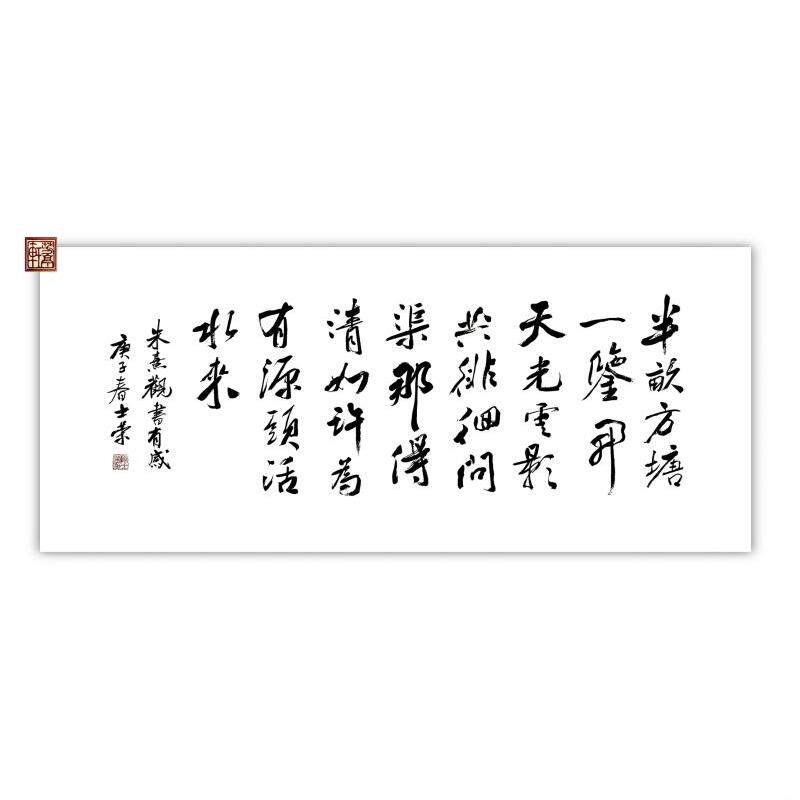 半畝方塘
一鑒開
天光雲影
共徘徊問
渠那得
清如許為
有源頭活
水來
朱熹觀書有感
庚子春士榮